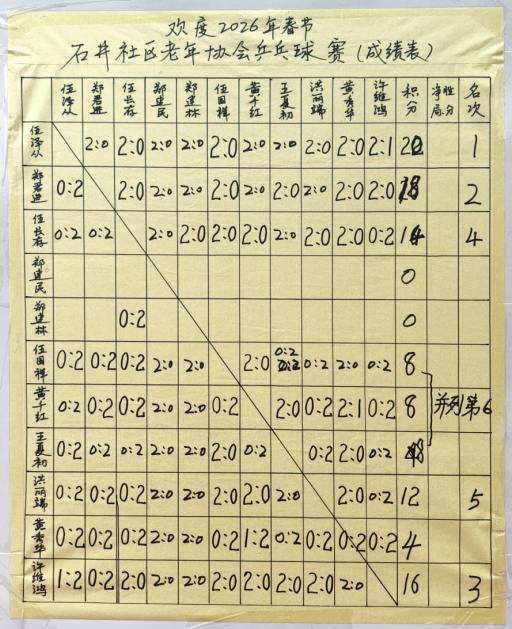 欢度2026年春节
石井社区老年协会乒乓球赛(成绩表)
伍泽从 郑君进 伍长存 郑建民 郑建林 伍国样 黄千红 王夏初 洪丽端 黄秀华 许维鸿 积分 净胜局分 名次
伍泽从 2:0 2:0 2:0 2:0 2:0 2:0 2:0 2:0 2:0 2:1 20 1
郑君进 0:2 2:0 2:0 2:0 2:0 2:0 2:0 2:0 2:0 2:0 18 2
伍长存 0:2 0:2 2:0 2:0 2:0 2:0 2:0 2:0 2:0 0:2 14 4
郑建民 0
郑建林 0:2 0
伍国样 0:2 0:2 0:2 2:0 2:0 2:0 0:2 0:2 2:0 0:2 8
黄千红 0:2 0:2 0:2 2:0 2:0 0:2 2:0 0:2 2:1 0:2 8 并列第6
王夏初 0:2 0:2 0:2 2:0 2:0 2:0 0:2 0:2 2:0 0:2 8
洪丽端 0:2 0:2 0:2 2:0 2:0 2:0 2:0 2:0 2:0 0:2 12 5
黄秀华 0:2 0:2 0:2 2:0 2:0 0:2 1:2 0:2 0:2 0:2 0:2 4
许维鸿 1:2 0:2 2:0 2:0 2:0 2:0 2:0 2:0 2:0 2:0 16 3